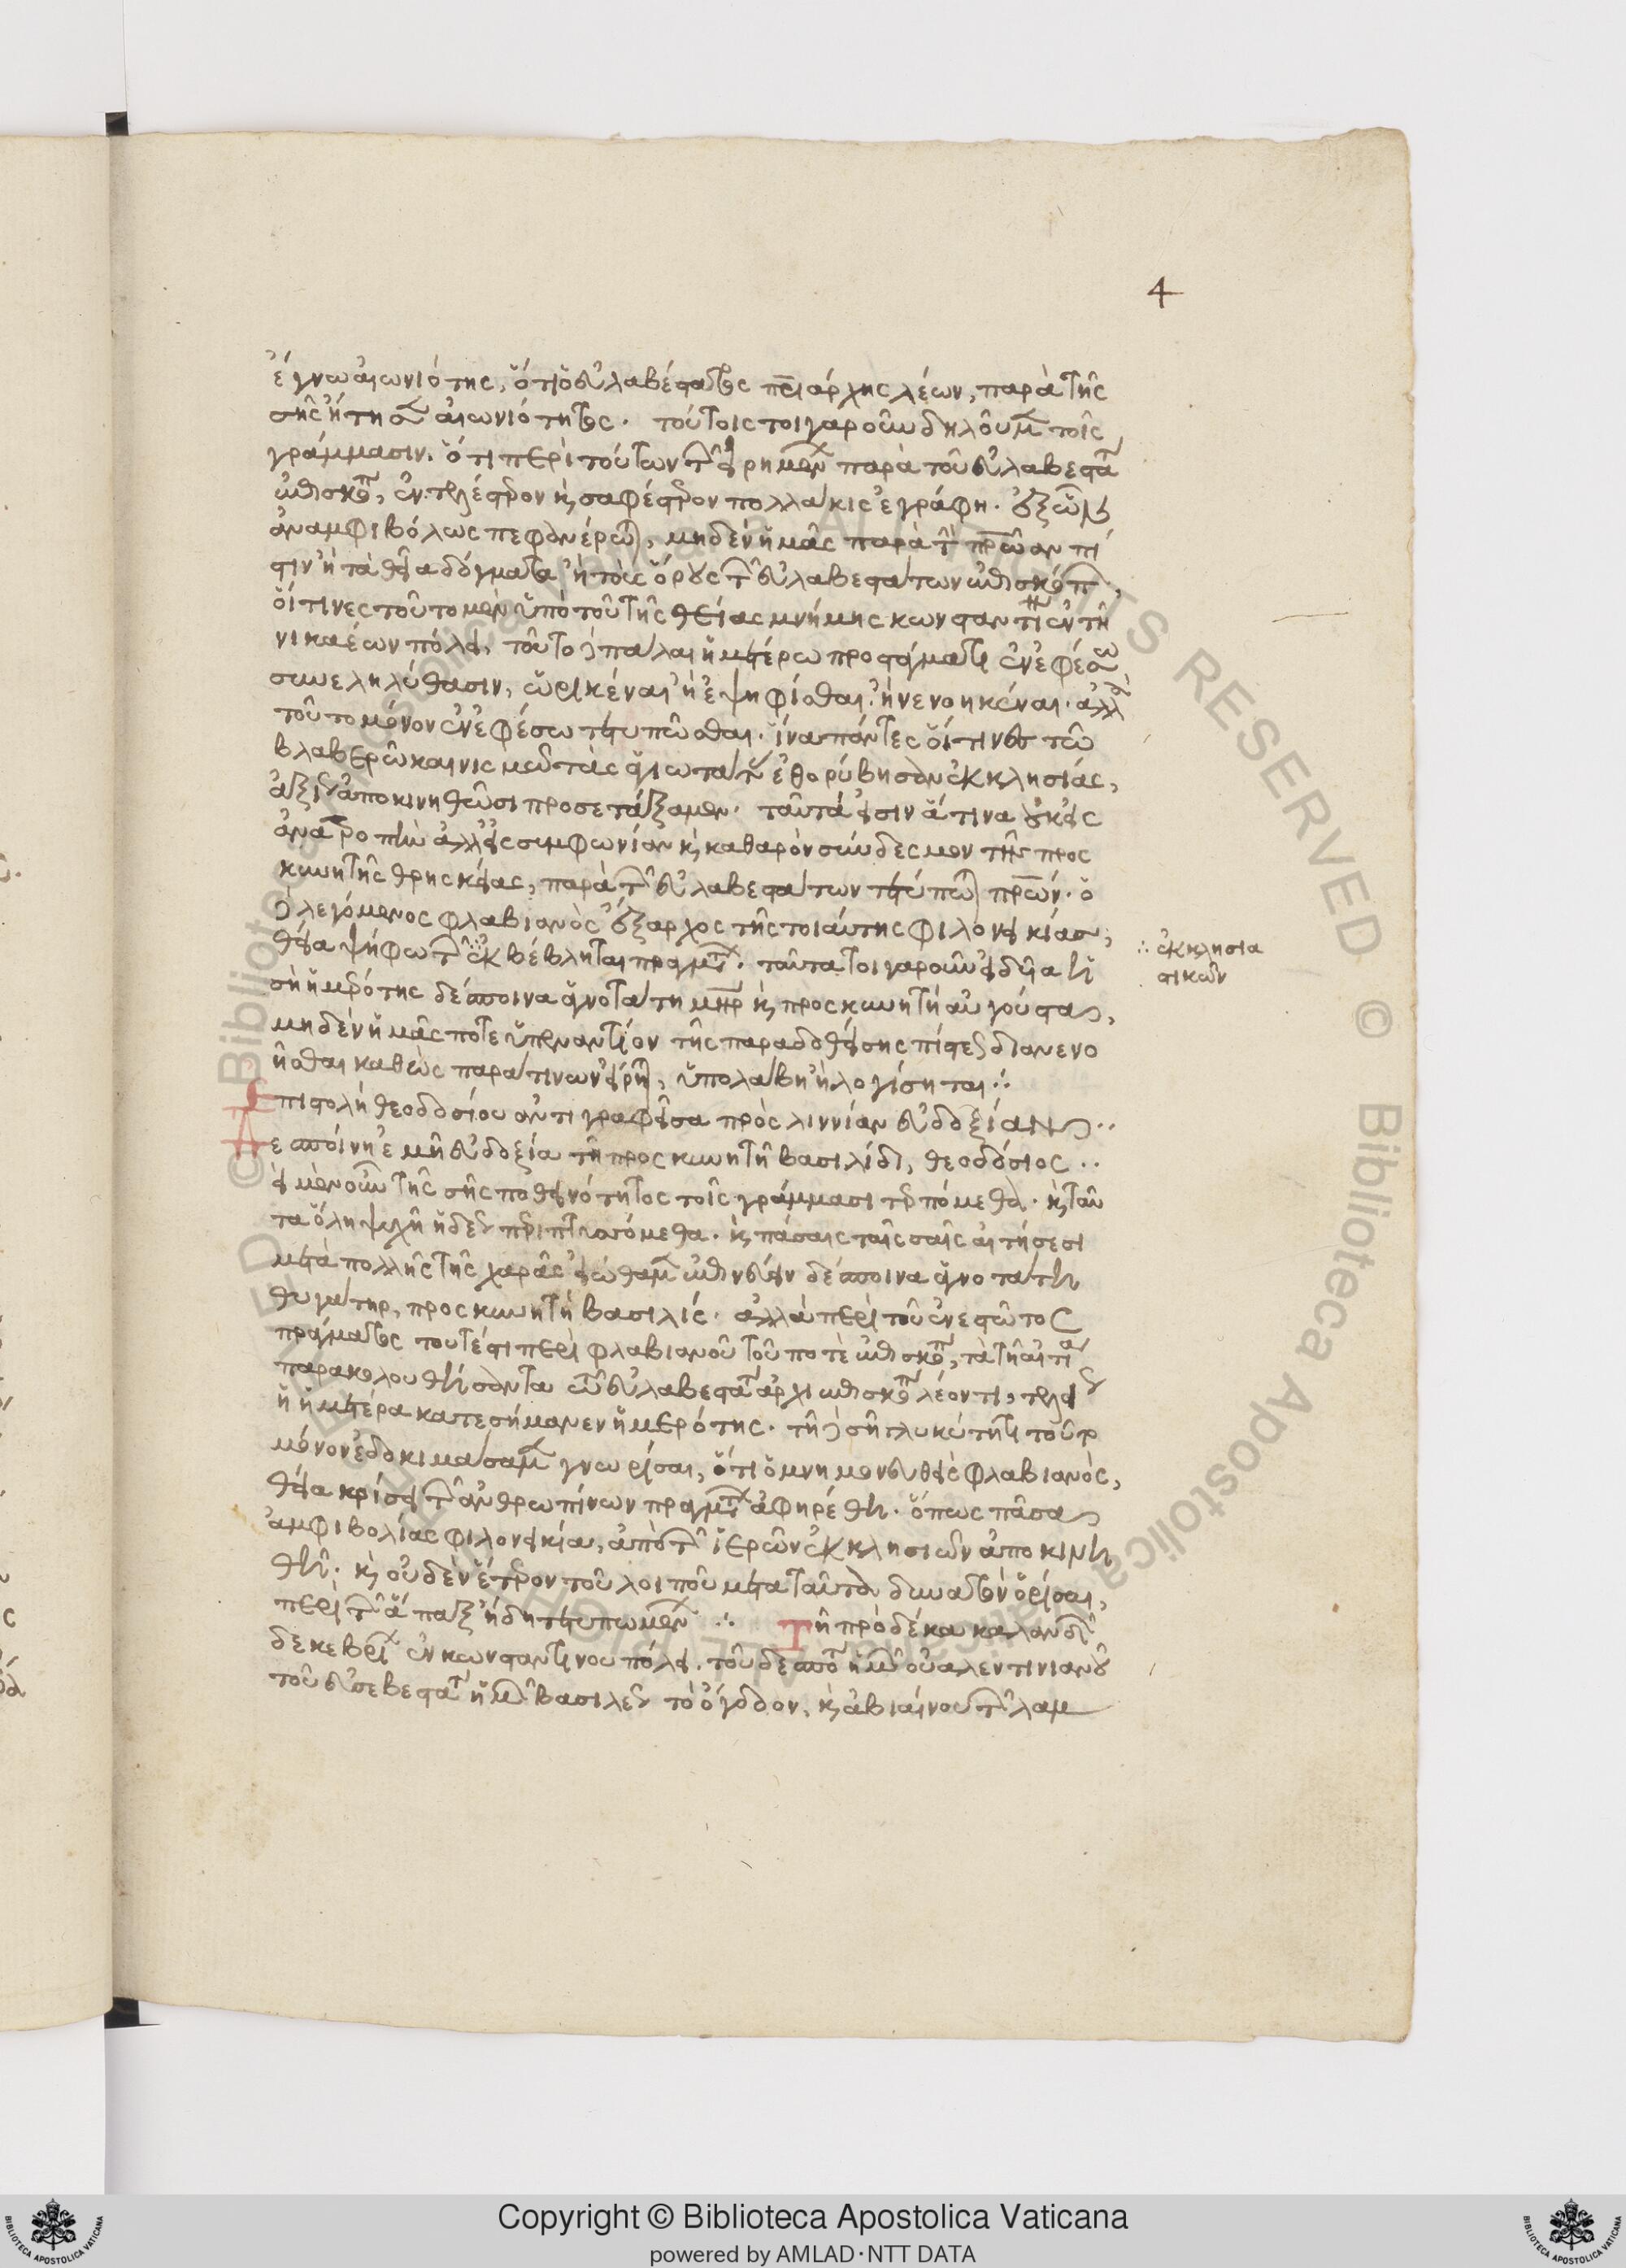 4
ἔγνω αἰωνιότης, ὅτι ὁ εὐλαβέστατος πατριάρχης λέων, παρὰ τῆς
σῆς ᾔτησεν αἰωνιότητος. τούτοις τοιγαροῦν δηλοῦμεν τοῖς
γράμμασιν, ὅτι περὶ τούτων τῶν εἰρημένων παρὰ τοῦ εὐλαβεστάτου
ἐπισκόπου, ἐντελέστερον καὶ σαφέστερον πολλάκις ἐγράφη. ἐξ ὧν καὶ
ἀναμφιβόλως πεφανέρωται, μηδὲν ἡμᾶς παρὰ τὴν πατρώαν πί
στιν ἢ τὰ θεῖα δόγματα ἢ τοὺς ὅρους τῶν εὐλαβεστάτων ἐπισκόπων,
οἵτινες τοῦτο μὲν ὑπὸ τοῦ τῆς θείας μνήμης κωνσταντίνου ἐν τῇ
νικαέων πόλει, τοῦτο δὲ πάλαι ἡμετέρω προστάγματι ἐν ἐφέσω
συνεληλύθασιν, ὡρικέναι ἢ ἐψηφίσθαι ἢ νενοηκέναι. ἀλλὰ
τοῦτο μόνον ἐν ἐφέσω τετυπῶσθαι. ἵνα πάντες οἵτινες τῶ
βλαβερῶ καινισμῶ τὰς ἁγιωτάτας ἐθορύβησαν ἐκκλησίας,
ἀξίως ἀποκινηθῶσι προσετάξαμεν. ταῦτά εἰσιν ἅτινα οὐκ εἰς
ἀνατροπὴν ἀλλ' εἰς συμφωνίαν καὶ καθαρὸν σύνδεσμον τῆς προσ
κυνητῆς θρησκείας, παρὰ τῶν εὐλαβεστάτων τετύπωται πατέρων. ὁ
δὲ λεγόμενος φλαβιανὸς ἔξαρχος τῆς τοιαύτης φιλονεικίας,
θεία ψήφω τῶν ∴ ἐκβέβληται πραγμάτων. ταῦτα τοιγαροῦν εἰδυῖα ἡ
∴ ἐκκλησια
στικῶν
σὴ ἡμερότης δέσποινα ἁγνοτάτη μῆτερ καὶ προσκυνητὴ αὐγούστα,
μηδὲν ἡμᾶς ποτε ὑπεναντίον τῆς παραδοθείσης πίστεως διανενο
ῆσθαι καθὼς παρά τινων εἴρηται, ὑπολάβῃ ἢ λογίσηται ∴
Ἐπιστολὴ θεοδοσίου ἀντιγραφεῖσα πρὸς λιννίαν εὐδοξίαν ∴
Δεσποίνῃ ἐμῇ εὐδοξία τῇ προσκυνητῇ βασιλίδι, θεοδόσιος ∴
ἀεὶ μὲν οὖν τῆς σῆς ποθεινότητος τοῖς γράμμασι τερπόμεθα. καὶ ταῦ
τα ὅλῃ ψυχῇ ἡδέως περιπτυσσόμεθα. καὶ πάσαις ταῖς σαῖς αἰτήσεσι
μετὰ πολλῆς τῆς χαρᾶς εἰώθαμεν ἐπινεύειν δέσποινα ἁγνοτάτη
θύγατηρ, προσκυνητὴ βασιλίς. ἀλλὰ περὶ τοῦ ἐνεστῶτος
πράγματος τουτέστι περὶ φλαβιανοῦ τοῦ ποτὲ ἐπισκόπου, τὰ τῇ αἰτία
παρακολουθήσαντα τῶ εὐλαβεστάτω ἀρχιεπισκόπω λέοντι, τελείως
ἡ ἡμετέρα κατεσήμανεν ἡμερότης. τῇ δὲ σῇ γλυκύτητι τοῦτο
μόνον ἐδοκιμάσαμεν γνωρίσαι, ὅτι ὁ μνημονευθεὶς φλαβιανὸς,
θεία κρίσει τῶν ἀνθρωπίνων πραγμάτων ἀφηρέθη. ὅπως πᾶσα
ἀμφιβολίας φιλονεικία, ἀπὸ τῶν ἱερῶν ἐκκλησιῶν ἀποκινη
θῇ. καὶ οὐδὲν ἕτερον τοῦ λοιποῦ μετὰ ταῦτα δυνατὸν ὁρίσαι,
περὶ τῶν ἅπαξ ἤδη τετυπωμένων ∴ Τῇ πρὸ δέκα καλανδῶν
δεκεβρίων ἐν κωνσταντινουπόλει. τοῦ δεσπότου ἡμῶν οὐαλεντινιανοῦ
τοῦ εὐσεβεστάτου ἡμῶν βασιλέως τὸ ὄγδοον, καὶ ἀβιαίνου τῶν λαμ
Copyright © Biblioteca Apostolica Vaticana
powered by AMLAD·NTT DATA